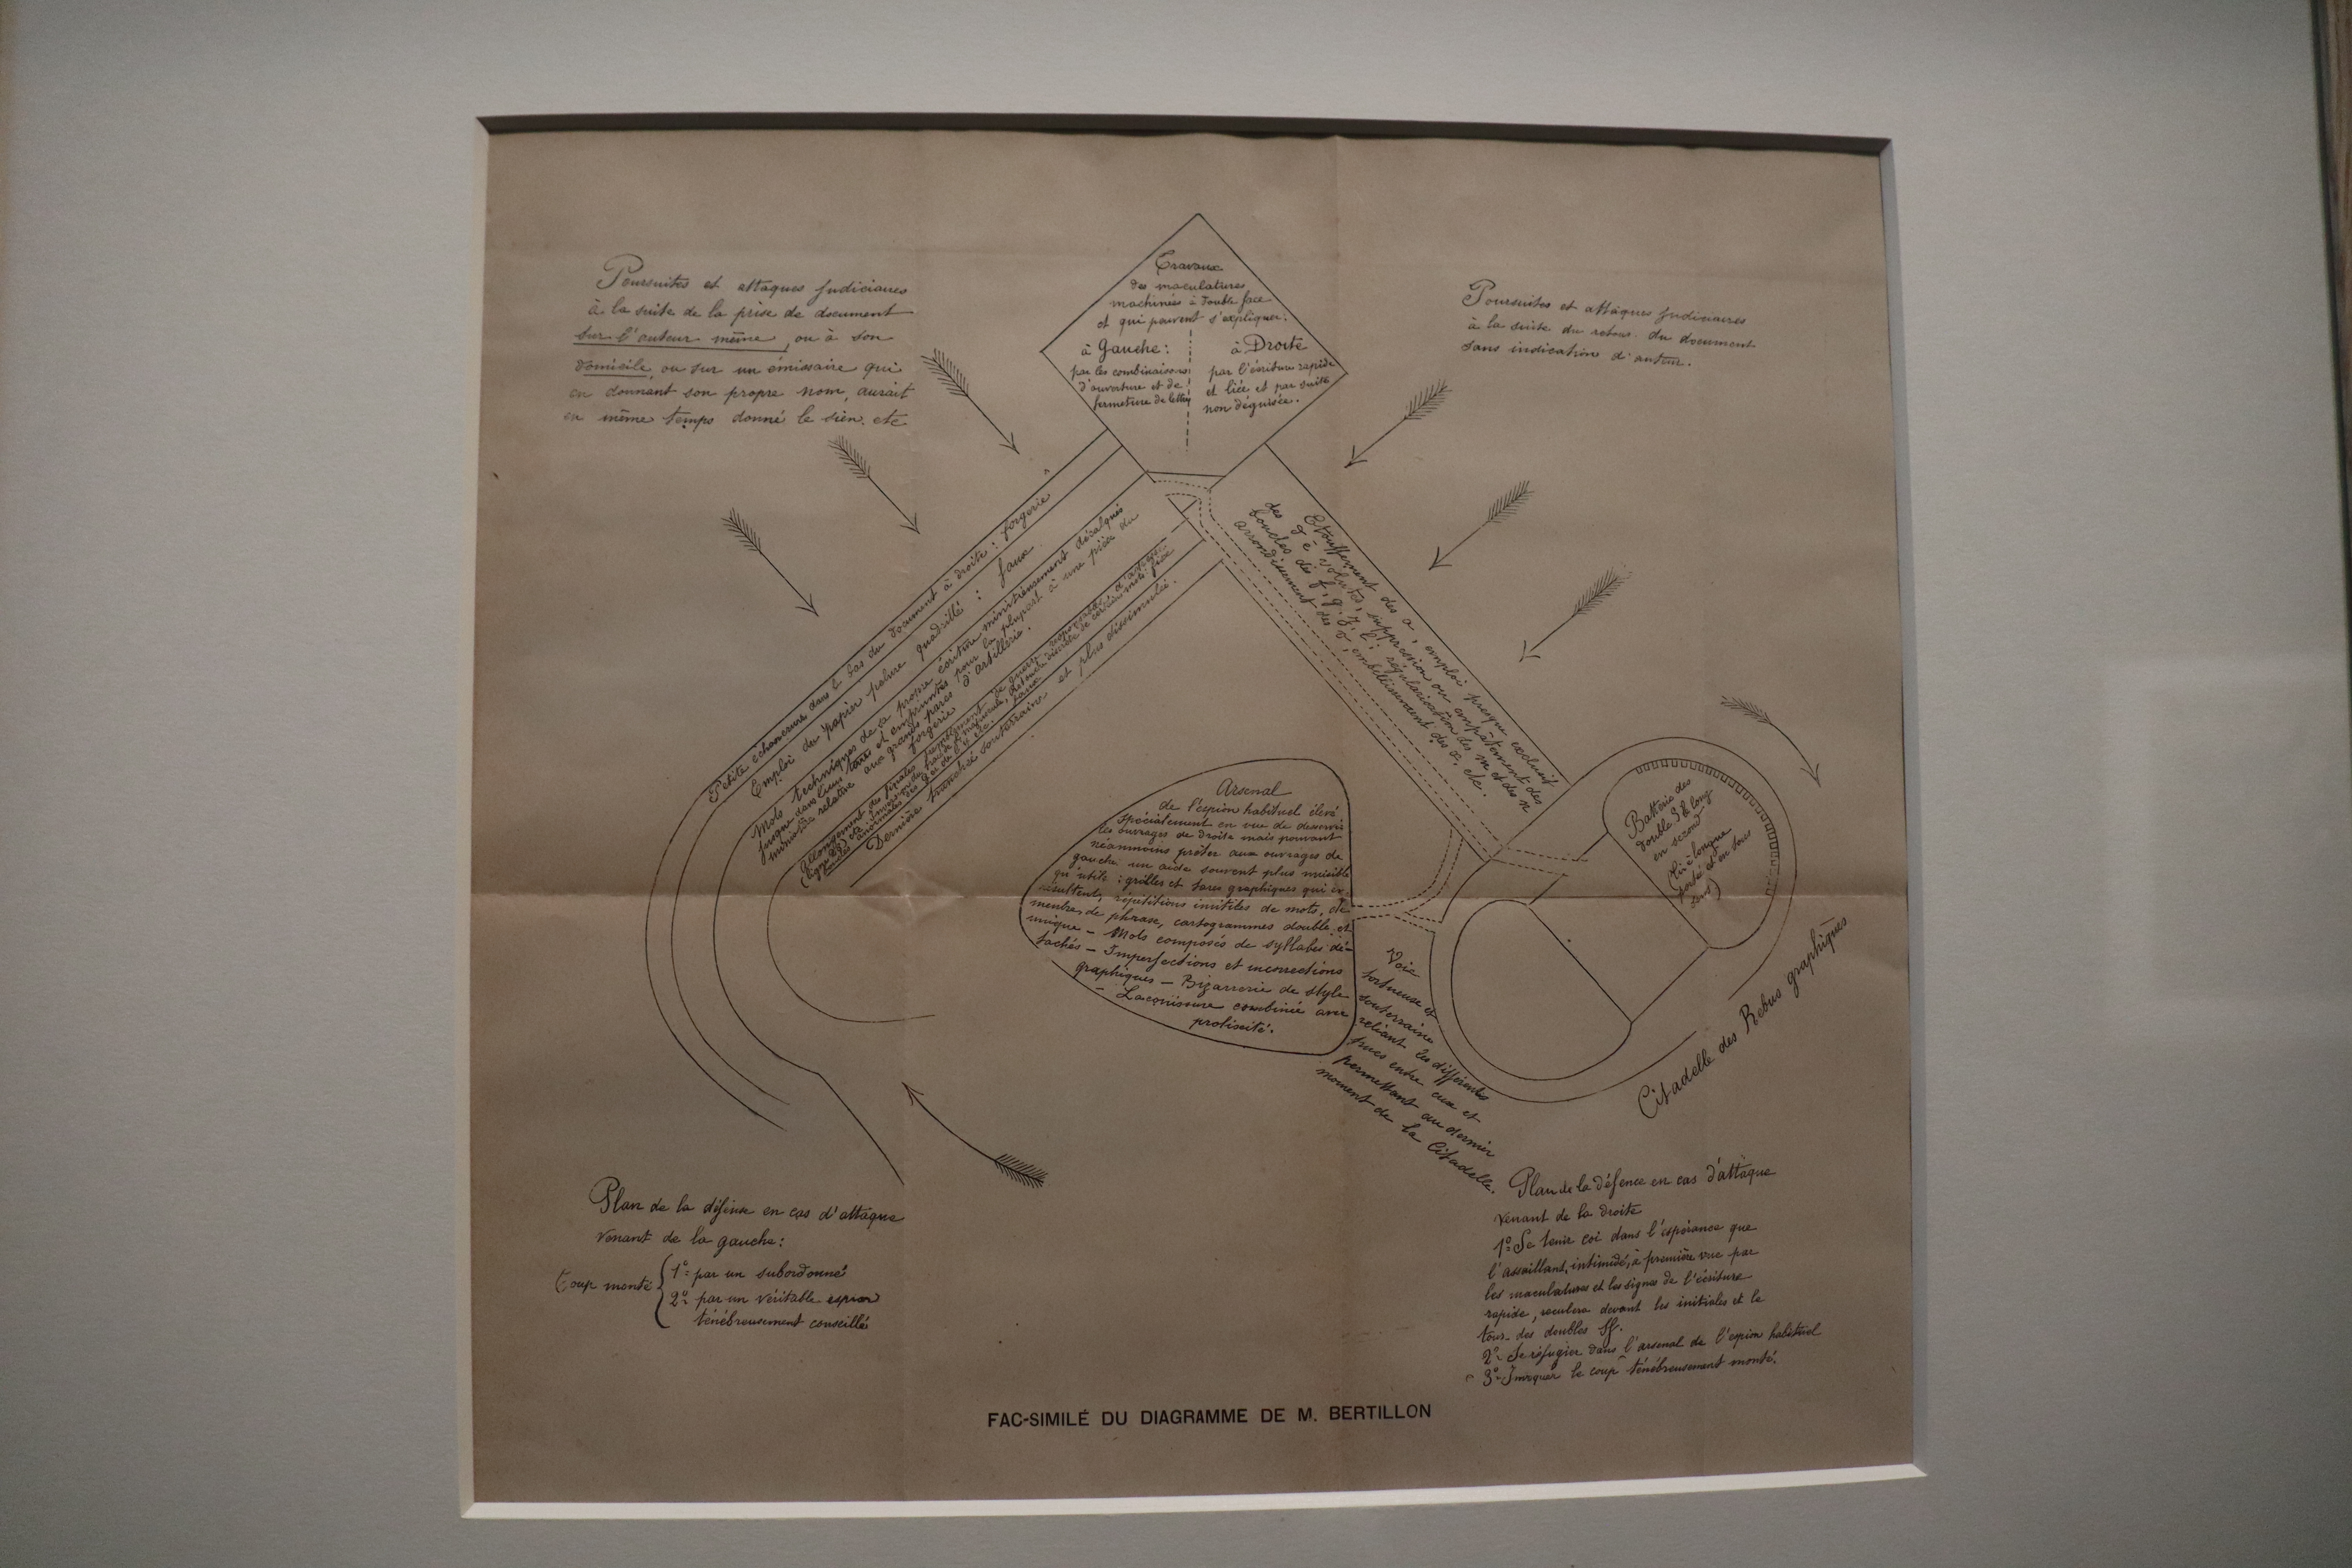 Poursuites et attaques judiciaires
à la suite de la prise de document
sur l'auteur même, ou à son
domicile, ou sur un émissaire qui
en donnant son propre nom, aurait
en même temps donné le sien. etc
Travaux
des maculatures
machinées à double face
et qui peuvent s'expliquer:
à Gauche:
par les combinaisons
d'ouverture et de
fermeture de lettres
à Droite
par l'écriture rapide
et liée et par suite
non déguisée.
Poursuites et attaques judiciaires
à la suite du retour du document
sans indication d'auteur.
Petite échancrure dans le bas du document à droite: forgerie
Emploi du papier pelure quadrillé: faux
Mots techniques de sa propre écriture minutieusement décalqués
jusque dans leurs et empruntés pour la plupart à une pièce du
ministère relative aux grands parcs d'artillerie.
forgerie
Allongement des finales
Dernière tranchée souterraine et plus dissimulée.
Etouffement des a, emploi presque exclusif
des volutes, suppression ou empâtement des
boucles des f, g, régularisation des m et des n
arrondissement des embellissement des x, etc.
Arsenal
de l'espion habituel élevé
spécialement en vue de desservir
les ouvrages de droite mais pouvant
néanmoins prêter aux ouvrages de
gauche un aide souvent plus nuisible
qu'utile: grilles et tares graphiques qui en
résultent, répétitions inutiles de mots, de
membres de phrase, cartogrammes double et
unique - Mots composés de syllabes dé-
tachés - Imperfections et incorrections
graphiques - Bizarrerie de style
- Laconisme combinée avec
prolixité.
Batterie des
double S & long
en second
(tir à longue
portée et en tous
sens)
Voie
tortueuse et
souterraine
reliant les différentes
entre eux et
permettant au dernier
moment de la Citadelle.
Citadelle des Rebus graphiques
Plan de la défense en cas d'attaque
venant de la gauche:
Coup monté
1º par un subordonné
2º par un véritable espion
ténébreusement conseillé
Plan de la défence en cas d'attaque
venant de la droite
1º Se tenir coi dans l'espérance que
l'assaillant, intimidé, à première vue par
les maculatures et les signes de l'écriture
rapide, reculera devant les initiales et le
tour des doubles SS.
2º Se réfugier dans l'arsenal de l'espion habituel
3º le coup ténébreusement monté.
FAC-SIMILÉ DU DIAGRAMME DE M. BERTILLON